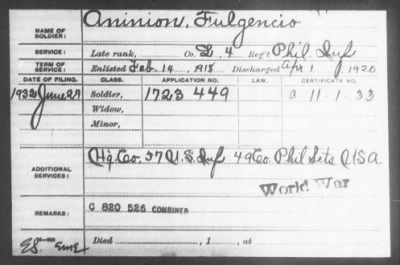 NAME OF SOLDIER: Aninion, Fulgencio
SERVICE: Late rank, Co. L. 4 Reg't Phil. Inf
TERM OF SERVICE: Enlisted Feb. 14, 1918 Discharged Apr 1, 1920
DATE OF FILING. CLASS. APPLICATION NO. LAW. CERTIFICATE NO.
1932 June 27 Soldier, 1723 449 a 11-1-33
Widow,
Minor,
ADDITIONAL SERVICES: Hq. Co. 57 U.S. Inf 49 Co. Phil Scts USA
World War
REMARKS: C 820 526 COMBINER
Died , 1 , at